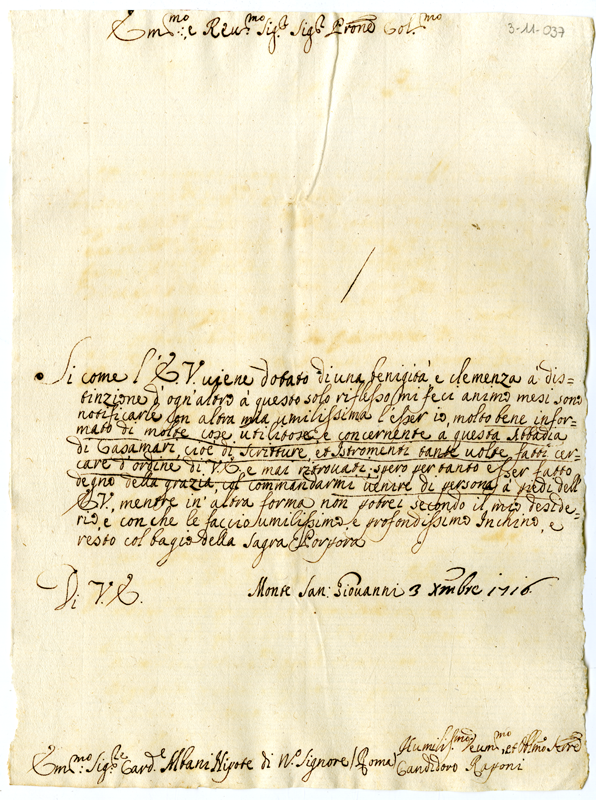 Em.mo, e Reu.mo Sig.r Sig.r Prone Col.mo
3-11-037
Si come l'E.V. uiene dotato di una benigità e clemenza a' dis=
tinzione d'ogn'altro à questo solo riflesso mi feci animo mesi sono
notificarle con altra mia umilissima l'esser io, molto bene infor=
mato di molte cose utilitose e concernente a questa Abbadia
di Casamari, cioè di Scritture, et Istromenti tante uolte fatti cer=
care d'ordine di V.E, e mai ritrouati; spero per tanto esser fatto
degno della grazia, col commandarmi uenire di persona à piedi dell'
E.V., mentre in' altra forma non potrei secondo il mio deside=
rio, e con che le faccio umilissimo e profondissimo Inchino, e
resto col bagio della Sagra Porpora
Di V.E.
Monte San: Giouanni 3 Xmbre 1716
Humiliss.mo Deum.mo, et Obl.mo Serre
Em.mo Sig.re Card.e Albani Nipote di N.o Signore / Roma
Candidoro Riponi